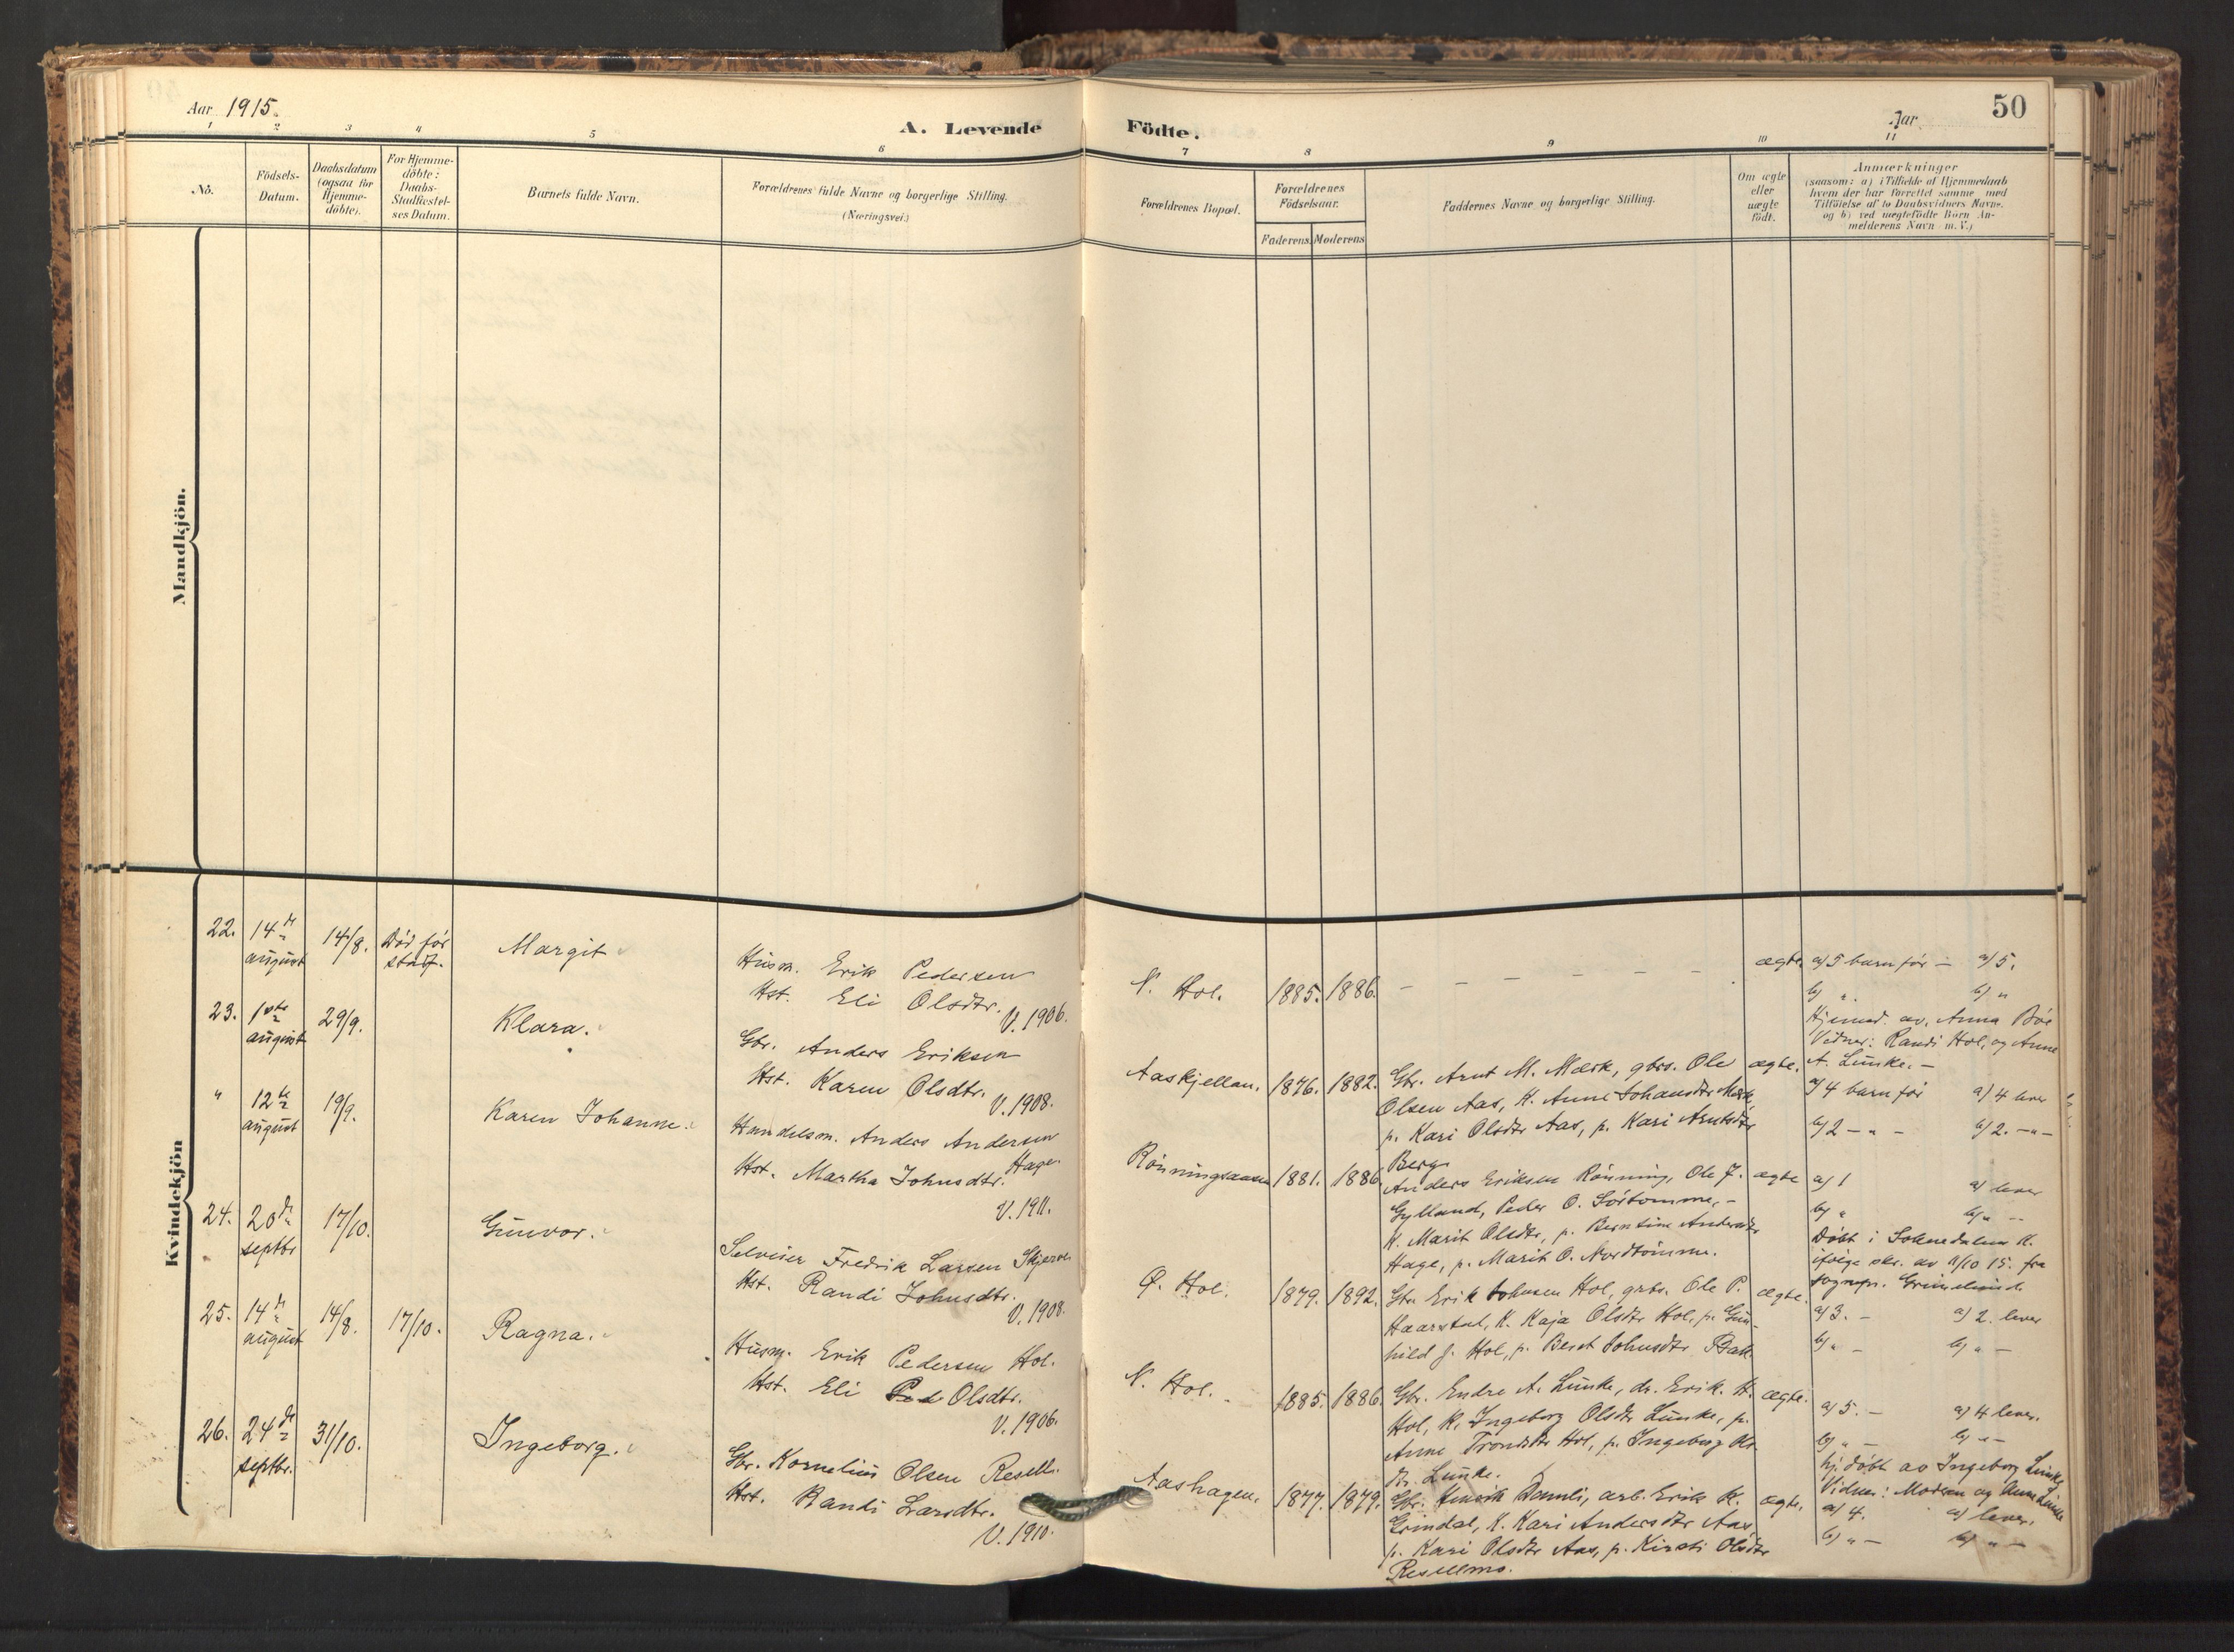 Aar 1915.
A. Levende
Födte.
Aar
50
1 2 3 4 5 6 7 8 9 10 11
No.
Födsels-
Datum.
Daabsdatum
(ogsaa for
Hjemme-
döbte).
For Hjemme-
döbte:
Daabs-
Stadfæstel-
ses Datum.
Barnets fulde Navn.
Forældrenes fulde Navne og borgerlige Stilling.
(Næringsvei.)
Forældrenes Bopæl.
Forældrenes
Födselsaar.
Faderens
Moderens
Faddernes Navne og borgerlige Stilling.
Om ægte
eller
uægte
födt.
Anmærkninger
(saasom: a) i Tilfælde af Hjemmedaab
hvem der har forrettet samme med
Tilföielse af to Daabsvidners Navne.
og b) ved uægtefödte Börn An-
melderens Navn m. V.)
Mandkjön.
Kvindekjön
22.
14de
august
14/8.
Död før
stadf.
Margit
Husm. Erik Pedersen
Hst. Eli Olsdtr.
V. 1906.
N. Hol.
1885.
1886.
– – – – – –
ægte.
a) 5 barn før – a) 5.
b) " b) "
Hjemmed. av, Anna Böe
Vidner: Randi Hol, og Anne
A. Lunke. –
23.
1ste
august
29/9.
Klara.
Gbr. Anders Eriksen
Hst. Karen Olsdtr.
V. 1908.
Aaskjellan.
1876.
1882.
Gbr. Arnt M. Mærk, gbrs. Ole
Olsen Aas, K. Anne Johansdtr Mærk,
p. Kari Olsdtr Aas, p. Kari Arntsdtr
Berg.
ægte.
a) 4 barn før a) 4 lever
b) 2 – " – b) 2. – " –
"
12te
august
19/9.
Karen Johanne.
Handelsm. Anders Andersen
Hage.
Hst. Martha Johnsdtr.
V. 1911.
Rönningsaasen
1881.
1886.
Anders Eriksen Rönning, Ole J.
Gylland, Peder O. Sörtömme, –
K. Marit Olsdtr, p. Berntine Andersdtr
Hage, p. Marit O. Nordtömme.
ægte
a) 1 a) lever
b) " b) " –
Döbt i Soknedalen K.
ifølge skr. av 11/10 15. fra
sognepr. Grimelund.
24.
20de
septbr
17/10.
Gunvor.
Selveier Fredrik Larsen Skjerve
Hst. Randi Johnsdtr.
V. 1908.
Ø. Hol.
1879.
1892.
Gbr. Erik Johnsen Hol, grbs. Ole P.
Haarstad, K. Kaja Olsdtr Hol, p. Gun-
hild J. Hol, p. Beret Johnsdtr Bak.
ægte.
a) 3. – a) 2. lever
b) " – b) " –
25.
14de
august
14/8.
17/10.
Ragna.
Husm. Erik Pedersen Hol.
Hst. Eli Olsdtr.
V. 1906.
N. Hol.
1885.
1886.
Gbr. Endre A. Lunke, dr. Erik. H.
Hol, K. Ingeborg Olsdtr Lunke, p.
Anne Trondsdtr Hol, p. Ingeborg Ols-
dtr. Lunke.
ægte.
a) 5. – a) 4 lever.
b) " – b) " –
hj. döbt av Ingeborg Lunke
Vidner: Moderen og Anne Lunke
26.
24de
septbr.
31/10.
Ingeborg.
Gbr. Kornelius Olsen Resell.
Hst. Randi Larsdtr.
V. 1910.
Aashagen.
1877.
1879.
Gbr. Henrik Damli, arb. Erik K.
Grindal, K. Kari Andersdtr Aas,
p. Kari Olsdtr Aas, p. Kirsti Olsdtr
Resellmo.
ægte.
a) 4. a) lever.
b) " – b) " –